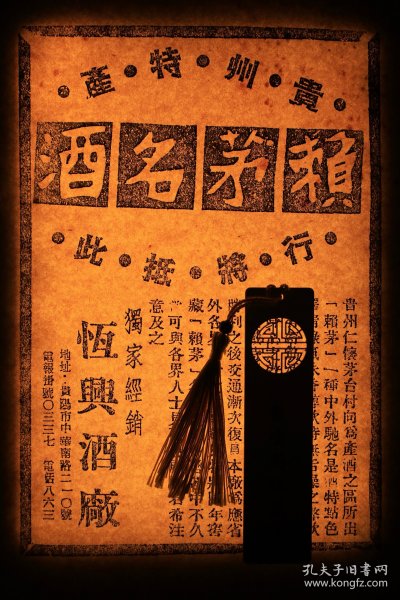 貴·州·特·產
賴茅名酒
行·將·抵·此
貴州仁懷茅台村向為產酒之區所出
「賴茅」一種中外馳名是酒特點色
利之後交通漸次復員本廠為應省
外各 年窖
藏「賴茅」 不久
可與各界人士 希注
意及之
獨家經銷
恆興酒廠
地址·貴陽市中華南路二一〇號
電報掛號〇三三七 電話八六三
孔夫子旧书网
www.kongfz.com